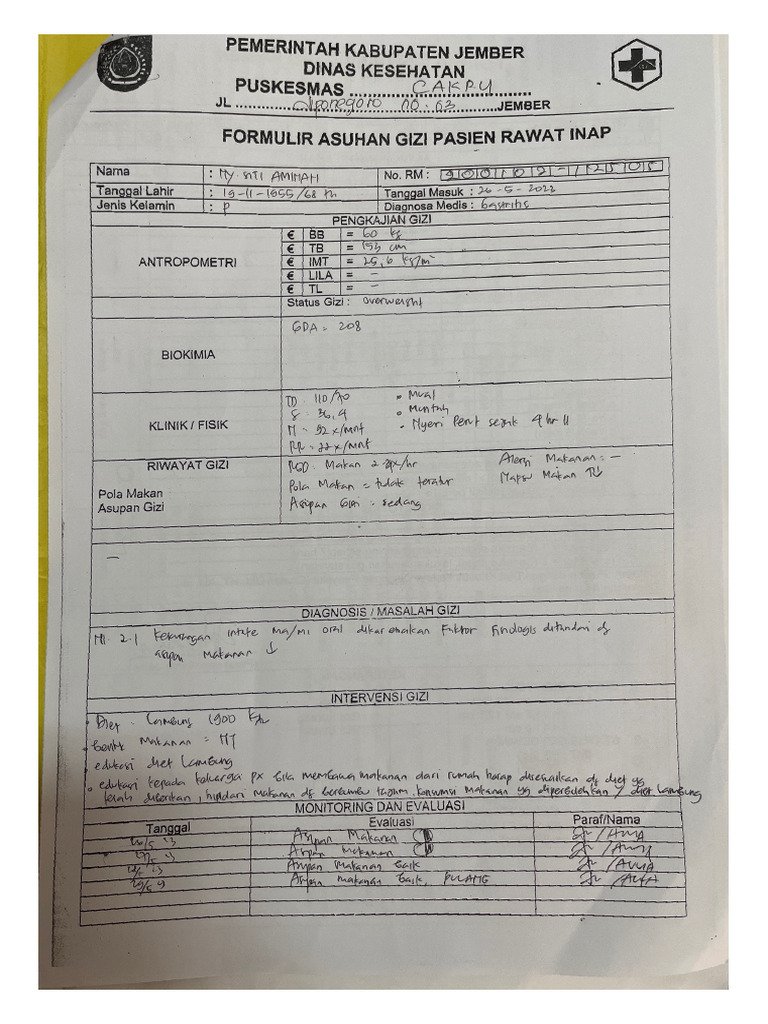 PEMERINTAH KABUPATEN JEMBER
DINAS KESEHATAN
PUSKESMAS CAKRU
JL diponegoro no. 63 JEMBER
FORMULIR ASUHAN GIZI PASIEN RAWAT INAP
Nama : Ny. SITI AMINAH No. RM :
Tanggal Lahir : 19-11-1955/68 th Tanggal Masuk : 26-5-2022
Jenis Kelamin : P Diagnosa Medis : Gastritis
PENGKAJIAN GIZI
ANTROPOMETRI
€ BB = 60 kg
€ TB = 153 cm
€ IMT = 25,6 kg/m²
€ LILA = -
€ TL = -
Status Gizi : overweight
BIOKIMIA
GDA = 208
KLINIK / FISIK
TD : 110/70 • Mual
S : 36,4 • Muntah
N = 92 x/mnt • Nyeri Perut sejak 4 hr
RR = 22 x/mnt
RIWAYAT GIZI
Pola Makan
Asupan Gizi
Makan 2-3x/hr Alergi Makanan : -
Pola Makan = tidak teratur Nafsu Makan ↓
Asupan Gizi = sedang
-
DIAGNOSIS / MASALAH GIZI
NI. 2.1 Kekurangan intake ma/mi oral dikarenakan Faktor Fisiologis ditandai dg
asupan Makanan ↓
INTERVENSI GIZI
• Diet : Lambung 1900 kkal
• Bentuk Makanan =
• edukasi diet Lambung
• edukasi kepada keluarga px bila membawa makanan dari rumah harap disesuaikan dg diet yg
telah diberikan, hindari makanan dg berbumbu tajam, konsumsi makanan yg diperbolehkan / diet Lambung
MONITORING DAN EVALUASI
Tanggal Evaluasi Paraf/Nama
Asupan Makanan
Asupan Makanan
Asupan Makanan baik
Asupan makanan baik, PULANG